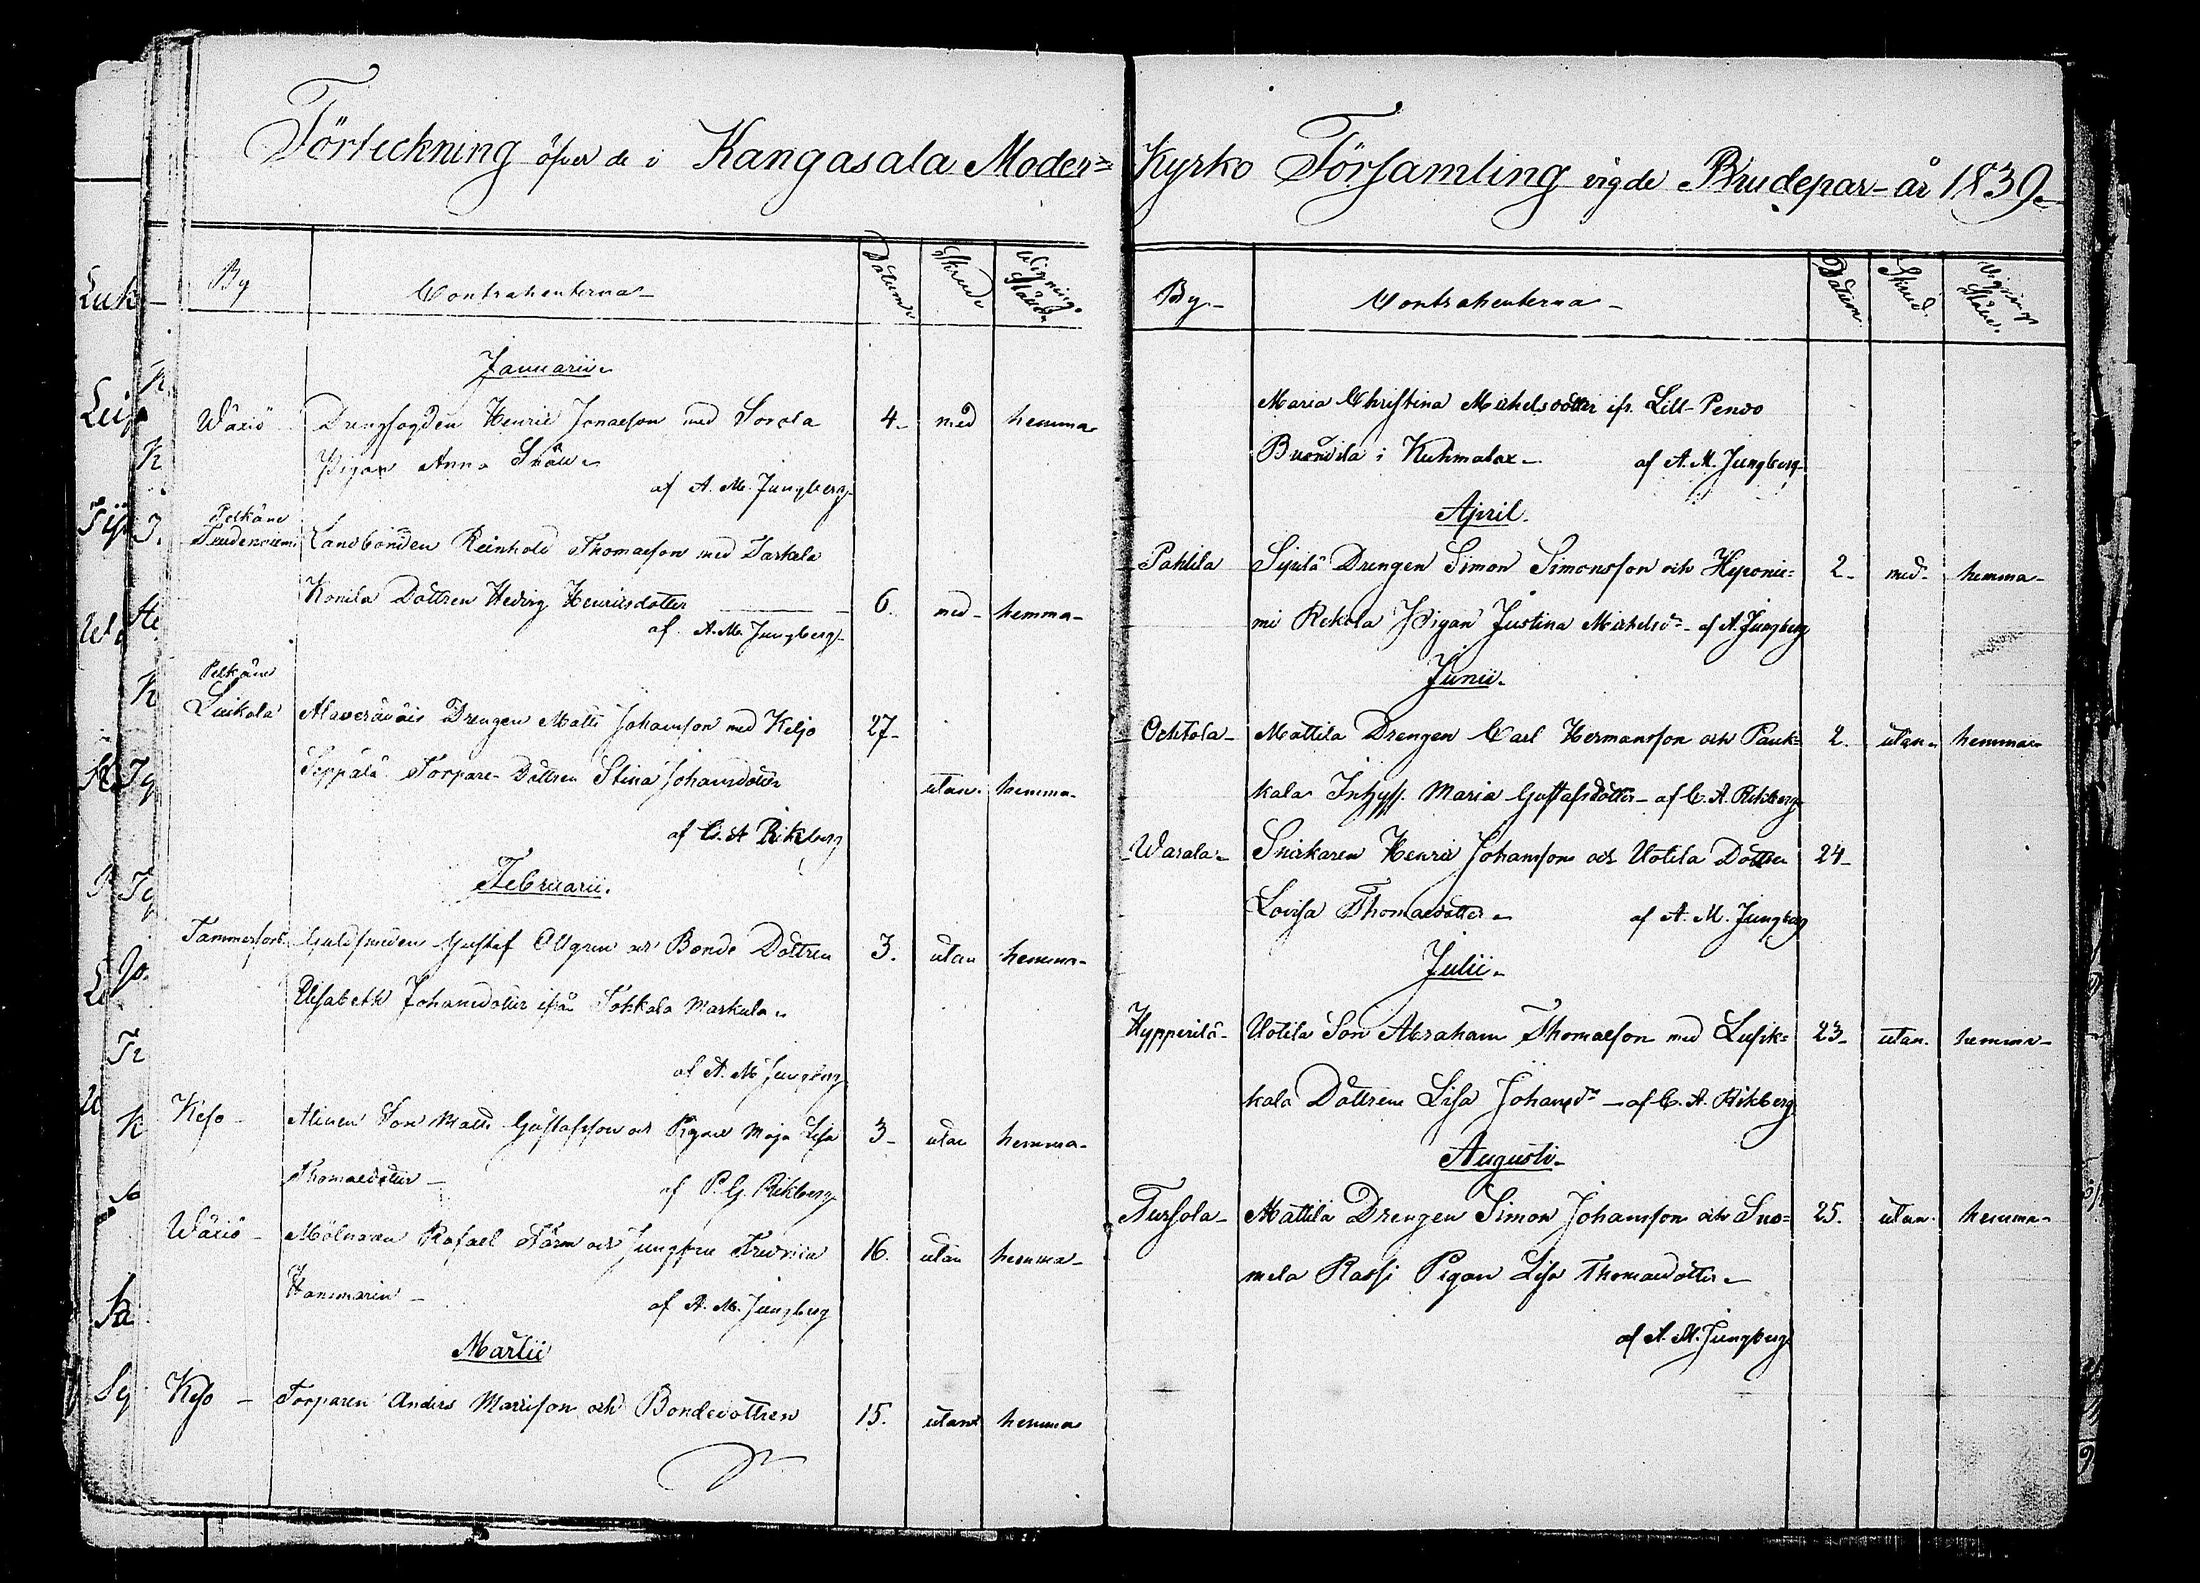 Förteckning öfver de i Kangasala Moder= Kyrko Församling vigde Brudepar år 1839.
By Contrahenterna Datum Skrud Vignings Ställe
Januarii
Wäxiö Drengfogden Henric Jonaesson med Sorola 4. med hemma
Pigan Anna
af A. M. Jungberg
Pelkäne
Landbonden Reinhold Thomasson med
Konila Dottren Hedvig Henricsdotter 6. med hemma
af A. M. Jungberg
Pelkäne
Drengen Matts Johansson med Keljo 27
Seppälä Torpare Dottren Stina Johansdotter utan hemma
af C. A. Rikberg
Februarii.
Tammerfors Guldsmeden Gustaf Ollgren och Bonde Dottren 3. utan hemma
Elisabeth Johansdotter ifrån Tohkala Markula
af A. M. Jungberg
Keso Son Matts Gustafsson och Pigan Maja Lisa 3 utan hemma
Thomasdotter af P. G. Rikberg
Wäxiö Mölnaren Rafael och Jungfru 16. utan hemma
af A. M. Jungberg
Martii
Keso Torparen Anders och Bondedottren 15. utan hemma
By Contrahenterna Datum Skrud. Vignings Ställe.
Maria Christina Michelsdotter ifr. Lill-Pendo
i Kuhmalax af A. M. Jungberg
April.
Pahlila Sipilä Drengen Simon Simonsson och Hyronie= 2 med hemma
mi Rekola Pigan Justina Michelsd:r af A. Jungberg
Junii.
Ochtola Mattila Drengen Carl Hermansson och Pauk= 2. utan hemma
kala Inhyss. Maria Gustafsdotter af C. A. Rikberg
Warala Snickaren Henric Johansson och Uotila Dottren 24
Lovisa Thomasdotter af A. M. Jungberg
Julii
Hypperilä Uotila Son Abraham Thomasson med Lusik= 23 utan hemma
kala Dottren Lisa Johansd:r af C. A. Rikberg
Augusti
Tursola Mattila Drengen Simon Johansson och Suo= 25. utan hemma
mela Rassi Pigan Lisa Thomasdotter
af A. M. Jungberg